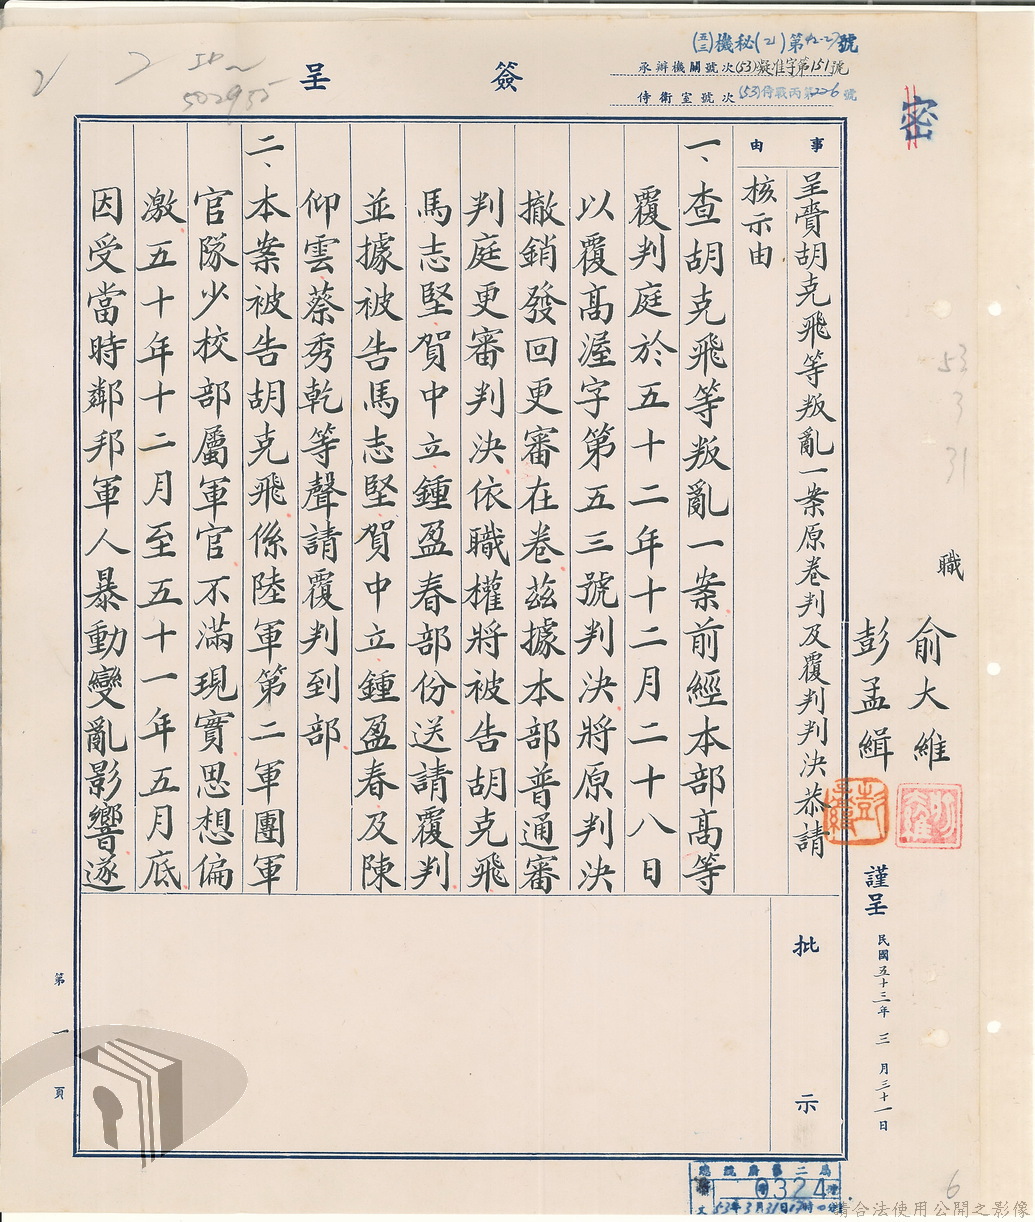 簽呈
(五三)機秘(乙)第92-27號
承辦機關號次(53)凝准字第151號
侍衛室號次(53)侍戰丙第226號
密
職
俞大維
彭孟緝
謹呈
民國五十三年三月三十一日
事由
呈賫胡克飛等叛亂一案原卷判及覆判判決恭請
核示由
一、查胡克飛等叛亂一案前經本部高等
覆判庭於五十二年十二月二十八日
以覆高渥字第五三號判決將原判決
撤銷發回更審在卷茲據本部普通審
判庭更審判決依職權將被告胡克飛
馬志堅賀中立鍾盈春部份送請覆判
並據被告馬志堅賀中立鍾盈春及陳
仰雲蔡秀乾等聲請覆判到部
二、本案被告胡克飛係陸軍第二軍團軍
官隊少校部屬軍官不滿現實思想偏
激五十年十二月至五十一年五月底
因受當時鄰邦軍人暴動變亂影響遂
批示
第一頁
53
3
31
502955
總統府第二局
0324
53年3月31日17時0分
6
請合法使用公開之影像